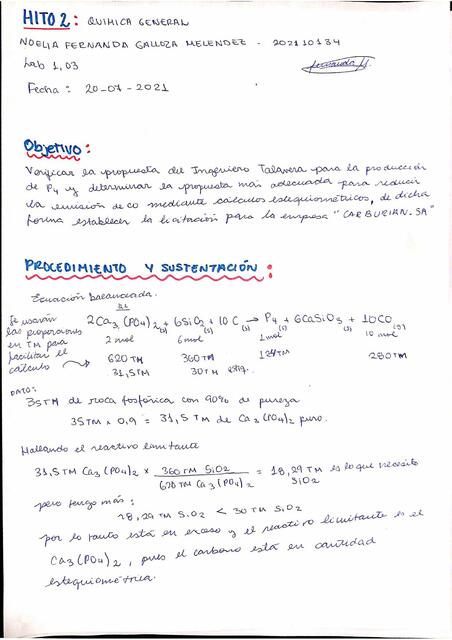 HITO 2: QUIMICA GENERAL
NOELIA FERNANDA GALLOZA MELENDEZ - 202110134
Lab 1,03
Fecha: 20-07-2021
Objetivo:
Verificar la propuesta del Ingeniero Talavera para la producción
de P4 y determinar la propuesta más adecuada para reducir
la emisión de CO mediante cálculos estequiométricos, de dicha
forma establecer la licitación para la empresa "CARBURIAN.SA"
PROCEDIMIENTO Y SUSTENTACIÓN:
Ecuación balanceada.
Se usarán las proporciones en TM para facilitar el cálculo
2Ca3(PO4)2 + 6SiO2(s) + 10C(s) → P4(s) + 6CaSiO3(s) + 10CO(g)
2 mol 6 mol 1 mol 10 mol
620 TM 360 TM 124 TM 280 TM
31,5TM 30 TM
DATO:
35TM de roca fosfórica con 90% de pureza
35TM x 0,9 = 31,5 TM de Ca3(PO4)2 puro.
Hallando el reactivo limitante
31,5 TM Ca3(PO4)2 x 360 TM SiO2 / 620 TM Ca3(PO4)2 = 18,29 TM es lo que necesito SiO2
pero tengo más:
18,29 TM SiO2 < 30 TM SiO2
por lo tanto está en exceso y el reactivo limitante es el
Ca3(PO4)2, pues el carbono está en cantidad
estequiométrica.